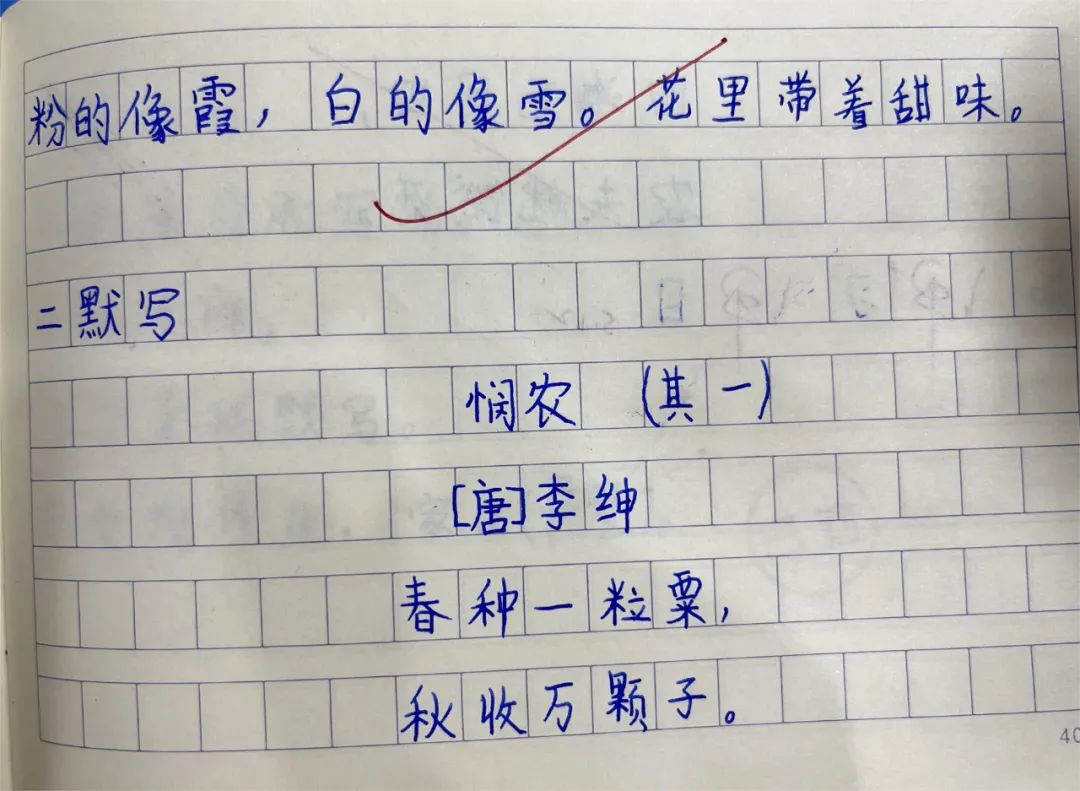 粉的像霞，白的像雪。花里带着甜味。
二默写
悯农（其一）
[唐]李绅
春种一粒粟，
秋收万颗子。
40